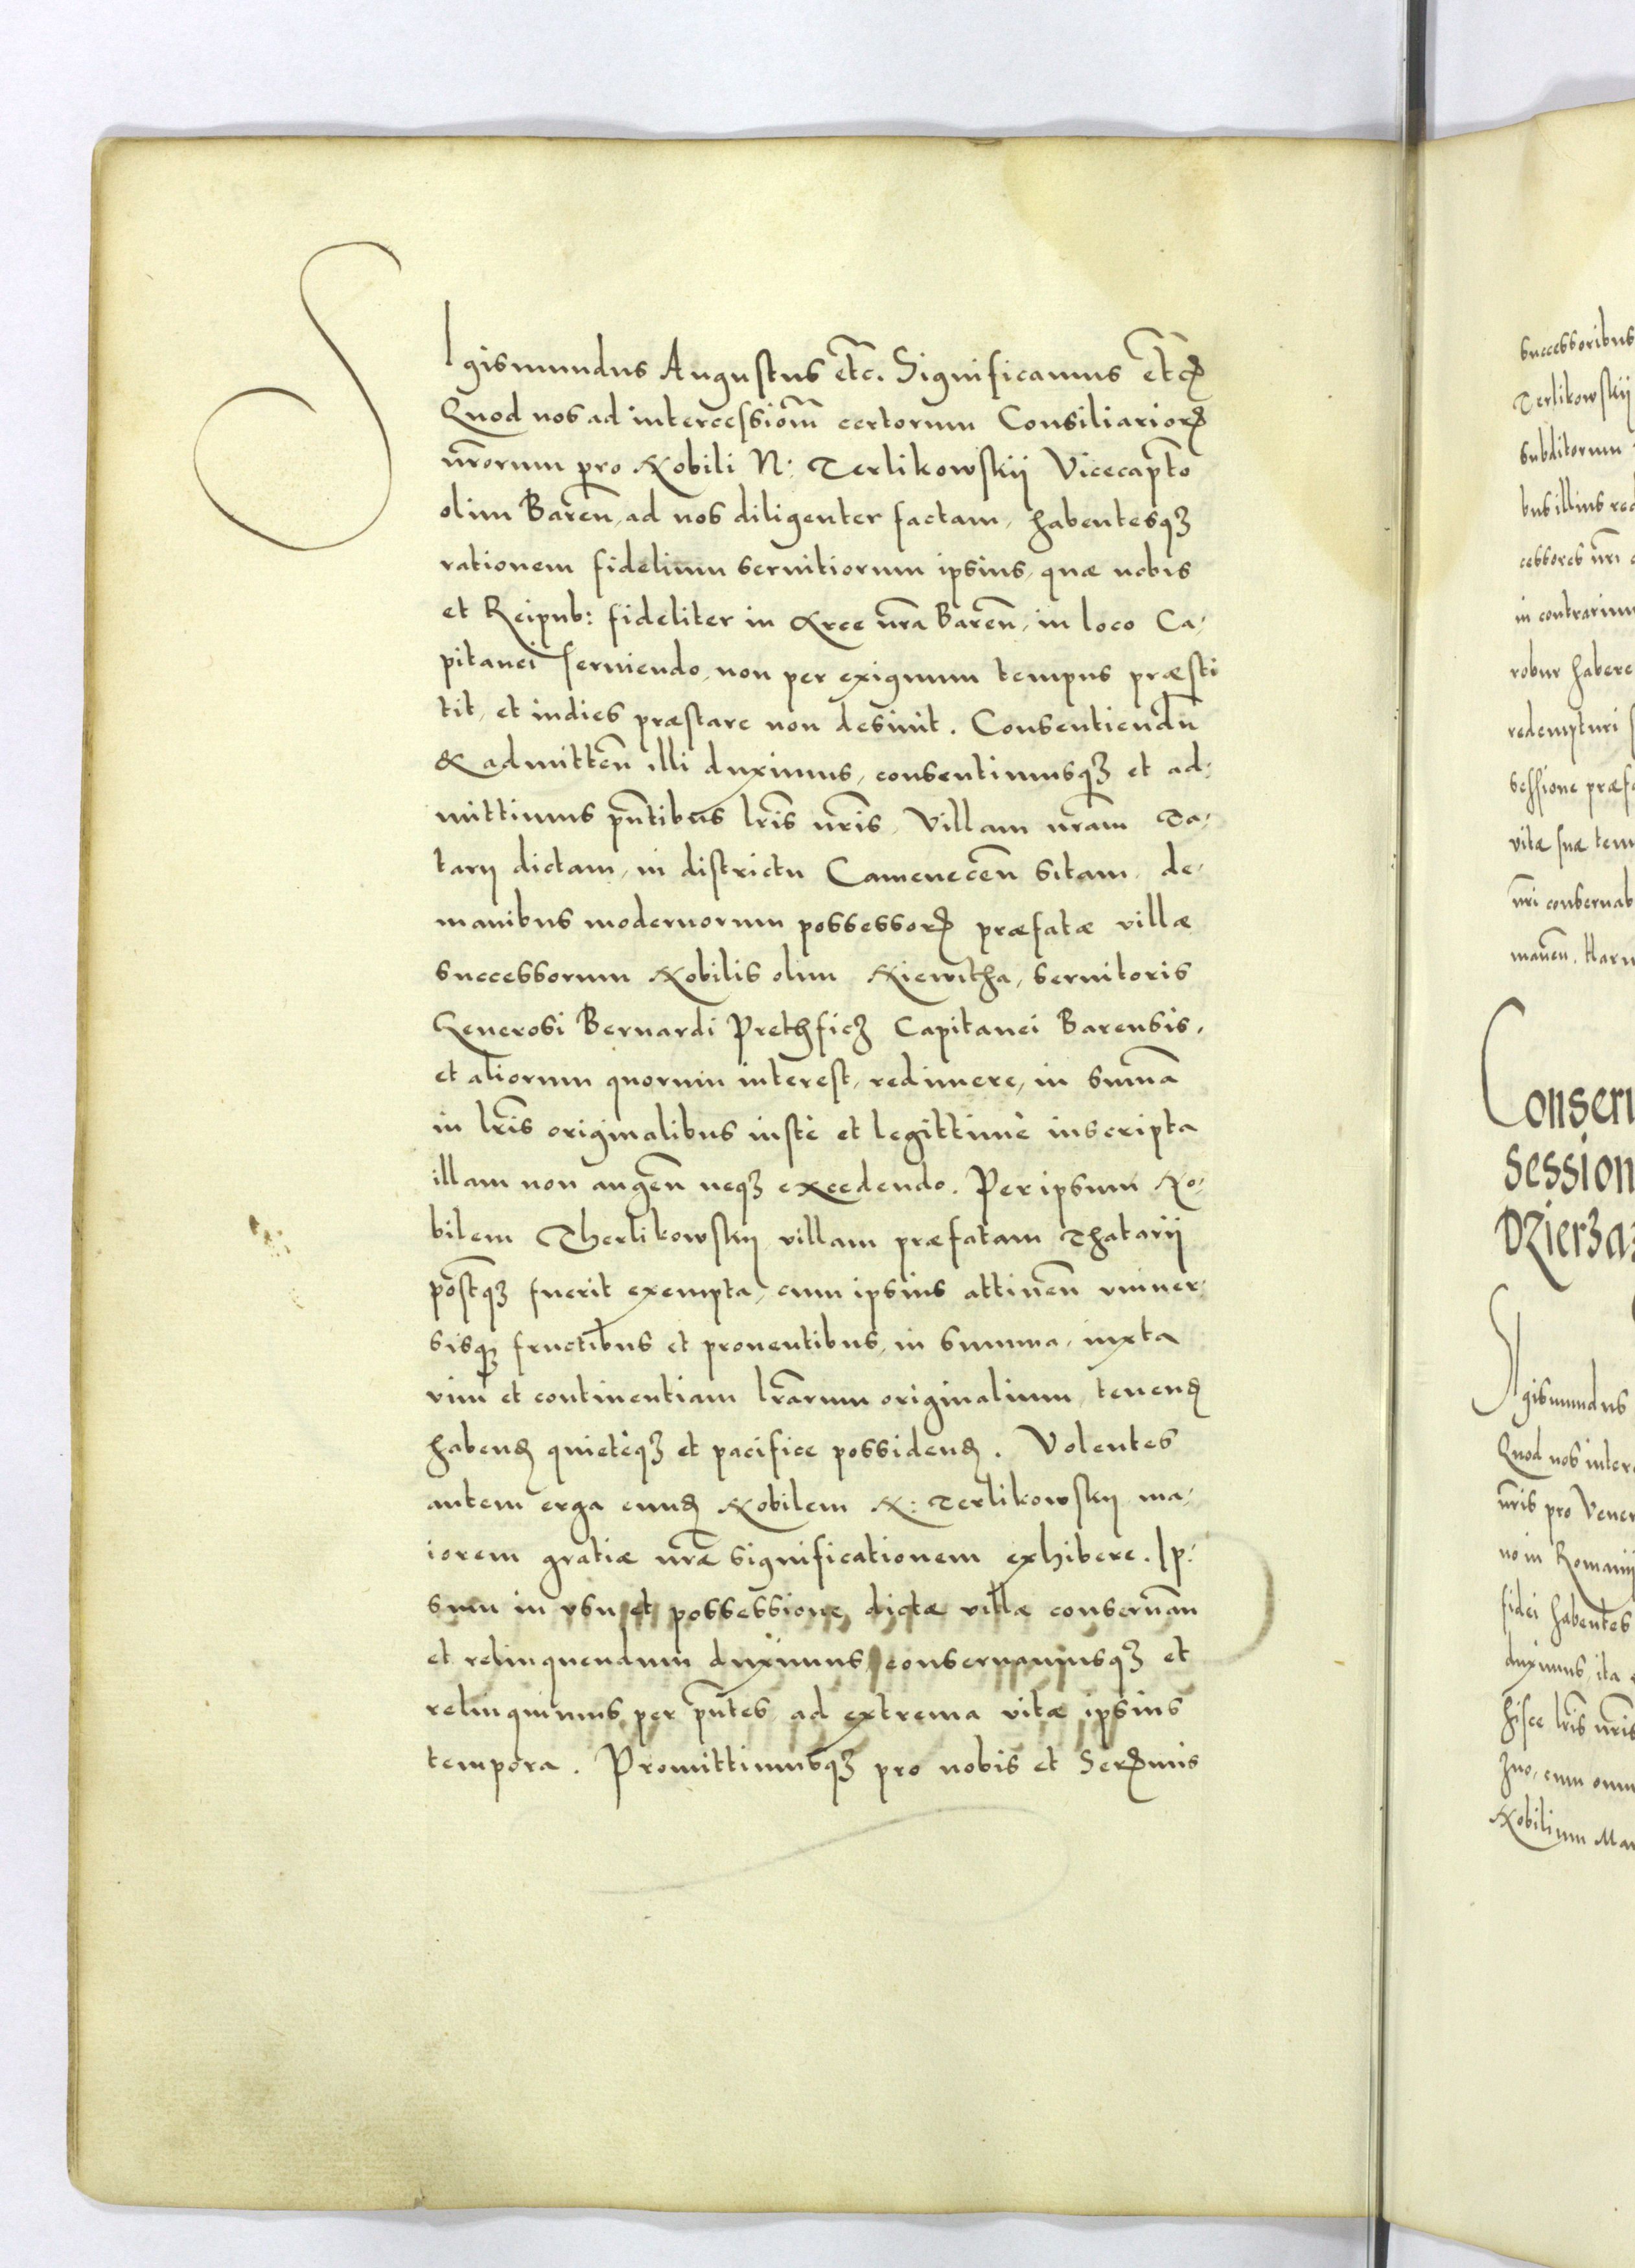 SIgismundus Augustus etc̃. Significamus etc̃ꝝ
Quod nos ad intercessiom̃ certorum Consiliarioꝝ
nr̃orum pro Nobili N: Terlikowskij Vicecap̃to
olim Bareñ, ad nos diligenter factam, habentesqꝫ
rationem fidelium seruitiorum ipsius, quæ nobis
et Reipub: fideliter in Arce nr̃a Bareñ, in loco Ca-
pitanei seruiendo, non per exiguum tempus præsti
tit, et indies præstare non desinit. Consentiendũ
& admitteñ illi duximus, consentimusqꝫ et ad-
mittimus pñtibus lr̃is nr̃is, Villam nr̃am Ta-
tarij dictam, in districtu Cameneceñ sitam, de
manibus modernorum possessoꝝ præfatæ villæ
successorum Nobilis olim Kiewitha, seruitoris
Generosi Bernardi Prethficz Capitanei Barensis,
et aliorum quorum interest, redimere, in sum̃a
in lr̃is originalibus iustè et legittimè inscripta
illam non augeñ neqꝫ excedendo. Per ipsum No-
bilem Therlikowskij villam præfatam Thatarij
post̃qꝫ fuerit exempta, cum ipsius attineñ vniuer-
sisqꝫ fructibus et prouentibus, in summa, iuxta
vim et continentiam lr̃arum originalium, tenenꝝ
habenꝝ quietèqꝫ et pacifice possidenꝝ. Volentes
autem erga eunꝝ Nobilem N: Terlikowskij ma-
iorem gratiæ nr̃æ significationem exhibere. Ip-
sum in vsu et possessione dictæ villæ conseruañ
et relinquendum duximus, conseruamusqꝫ et
relinquimus per pñtes ad extrema vitæ ipsius
tempora. Promittimusqꝫ pro nobis et Serꝝmis
successoribus
Terlikowskij
subditorum
bus illius red
cessores nr̃i
in contrarium
robur habere
redempturi
sessione præf
vitæ suæ tem
nr̃i conseruab
mañeu. Har
Conseru
session
Dzierza
SIgismundus
Quod nos inter
nr̃is pro Vener
no in Romanij
fidei habentes
duximus, ita
hisce lr̃is nr̃is
zno, cum omn
Nobilium Mar